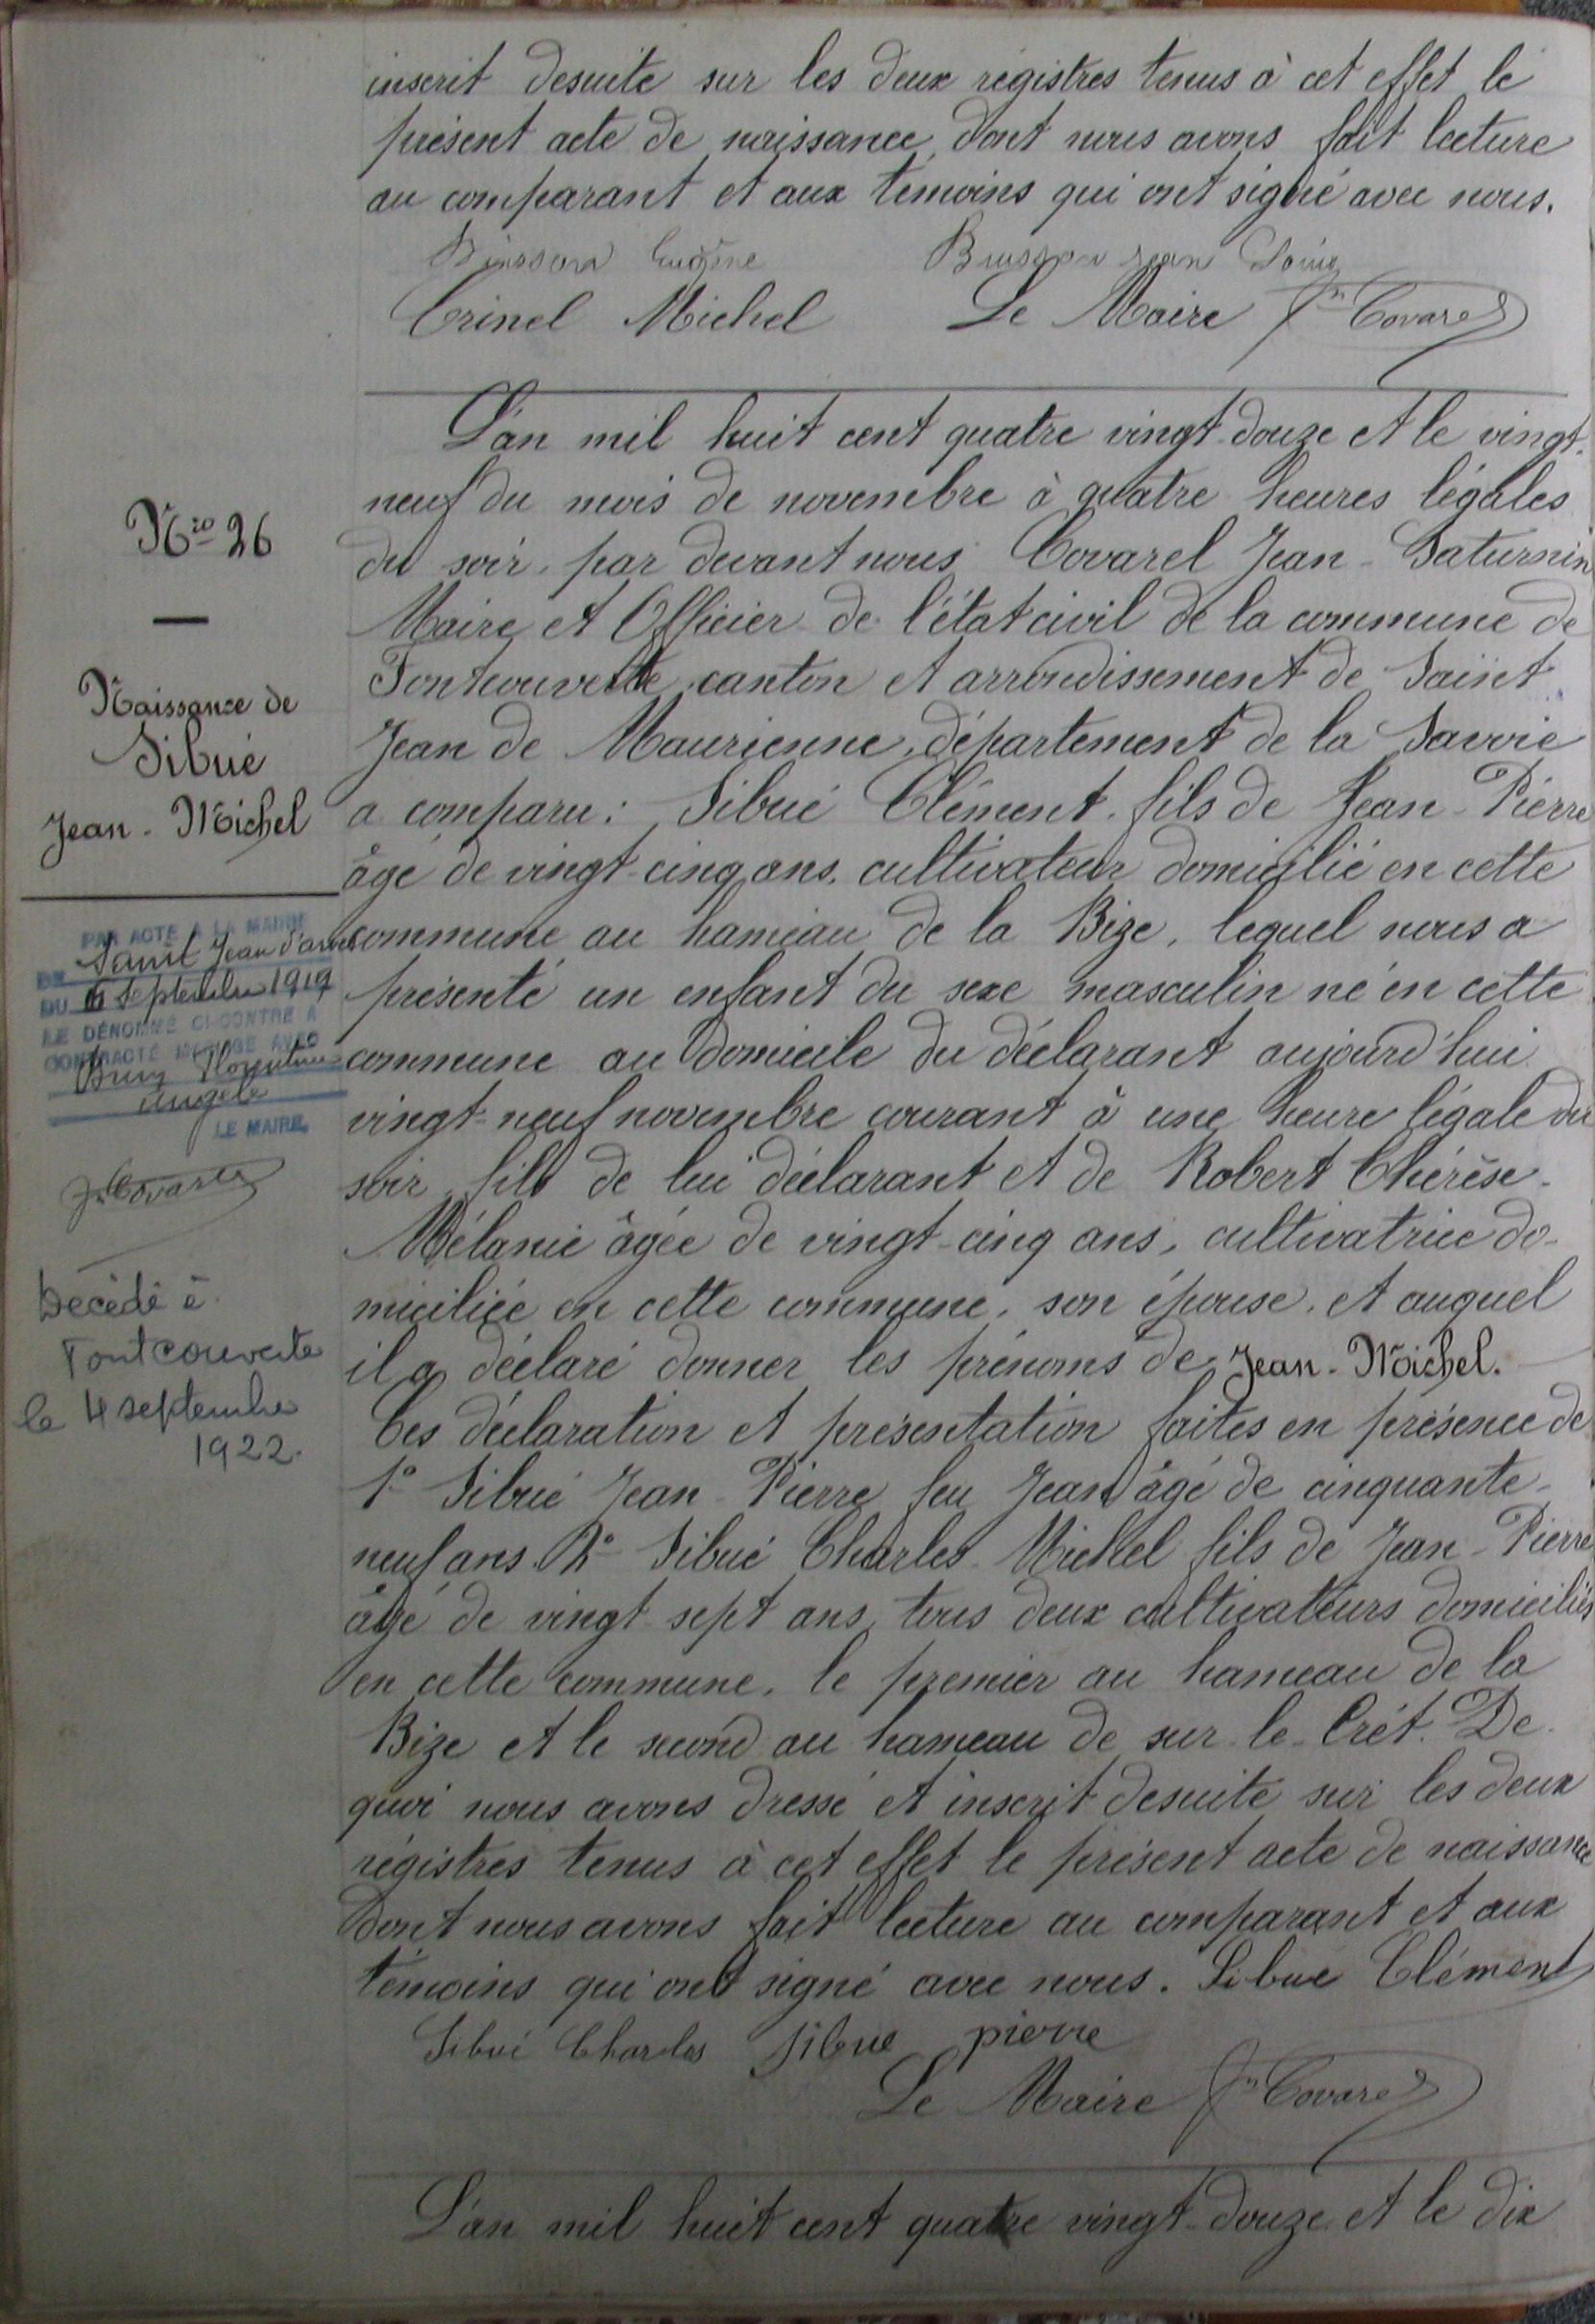 inscrit desuite sur les deux régistres tenus à cet effet le
présent acte de naissance dont nous avons fait lecture
au comparant et aux témoins qui ont signé avec nous.
Buisson Eugène Buisson Jean Louis
Crinel Michel Le Maire Jn Covarel
L'an mil huit cent quatre vingt-douze et le vingt-
neuf du mois de novembre à quatre heures légales
du soir, par devant nous Covarel Jean-Saturnin
Maire et Officier de l'état civil de la commune de
Fontcouverte, canton et arrondissement de Saint
Jean de Maurienne, département de la Savoie
a comparu: Sibué Clément, fils de Jean-Pierre
âgé de vingt-cinq ans, cultivateur domicilié en cette
commune au hameau de la Bize, lequel nous a
présenté un enfant du sexe masculin né en cette
commune au domicile du déclarant aujourd'hui
vingt-neuf novembre courant à une heure légale du
soir, fils de lui déclarant et de Robert Thérèse-
Mélanie âgée de vingt-cinq ans, cultivatrice do-
miciliée en cette commune, son épouse, et auquel
il a déclaré donner les prénoms de Jean-Michel.
Ces déclaration et présentation faites en présence de
1° Sibué Jean-Pierre feu Jean âgé de cinquante-
neuf ans 2° Sibué Charles-Michel fils de Jean-Pierre
âgé de vingt-sept ans, tous deux cultivateurs domiciliés
en cette commune, le premier au hameau de la
Bize et le second au hameau de sur-le-Crêt. De
quoi nous avons dressé et inscrit desuite sur les deux
régistres tenus à cet effet le présent acte de naissance
dont nous avons fait lecture au comparant et aux
témoins qui ont signé avec nous. Sibué Clément
Sibué Charles Sibué pierre
Le Maire Jn Covarel
L'an mil huit cent quatre vingt-douze et le dix
Nro 26
Naissance de
Sibué
Jean-Michel
PAR ACTE A LA MAIRIE
DE Saint Jean d'arves
DU 6 Septembre 1919
LE DÉNOMMÉ CI-CONTRE A
CONTRACTÉ MARIAGE AVEC
angèle
LE MAIRE,
Jn Covarel
Décédé à
Fontcouverte
le 4 septembre
1922.